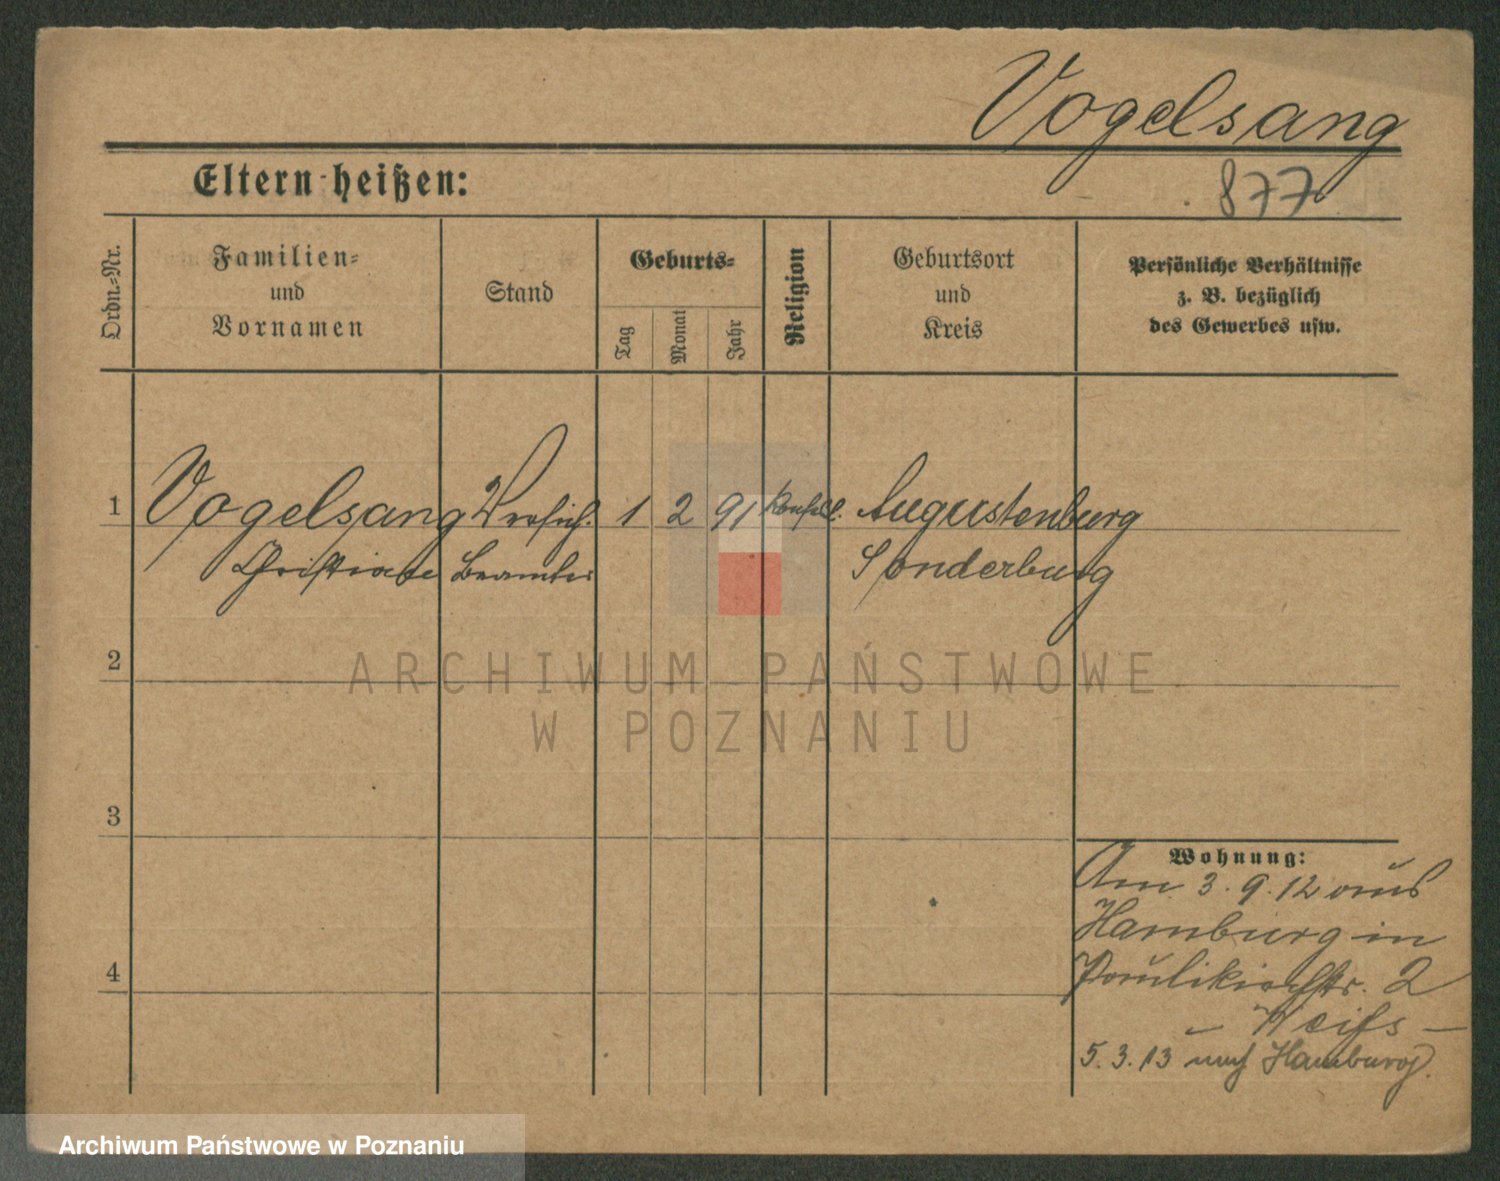 Vogelsang
Eltern heißen:
877
Ordn.-Nr.
Familien-
und
Vornamen
Stand
Geburts-
Tag
Monat
Jahr
Religion
Geburtsort
und
Kreis
Persönliche Verhältnisse
z. B. bezüglich
des Gewerbes usw.
1 Vogelsang Versich. 1 2 91 Augustenburg
Christian Beamter Sonderburg
2
3
4
Wohnung:
Am 3.9.12 aus
Hamburg in
Paulikirchstr. 2
– Weiss –
5.3.13 nach Hamburg.
ARCHIWUM PAŃSTWOWE
W POZNANIU
Archiwum Państwowe w Poznaniu